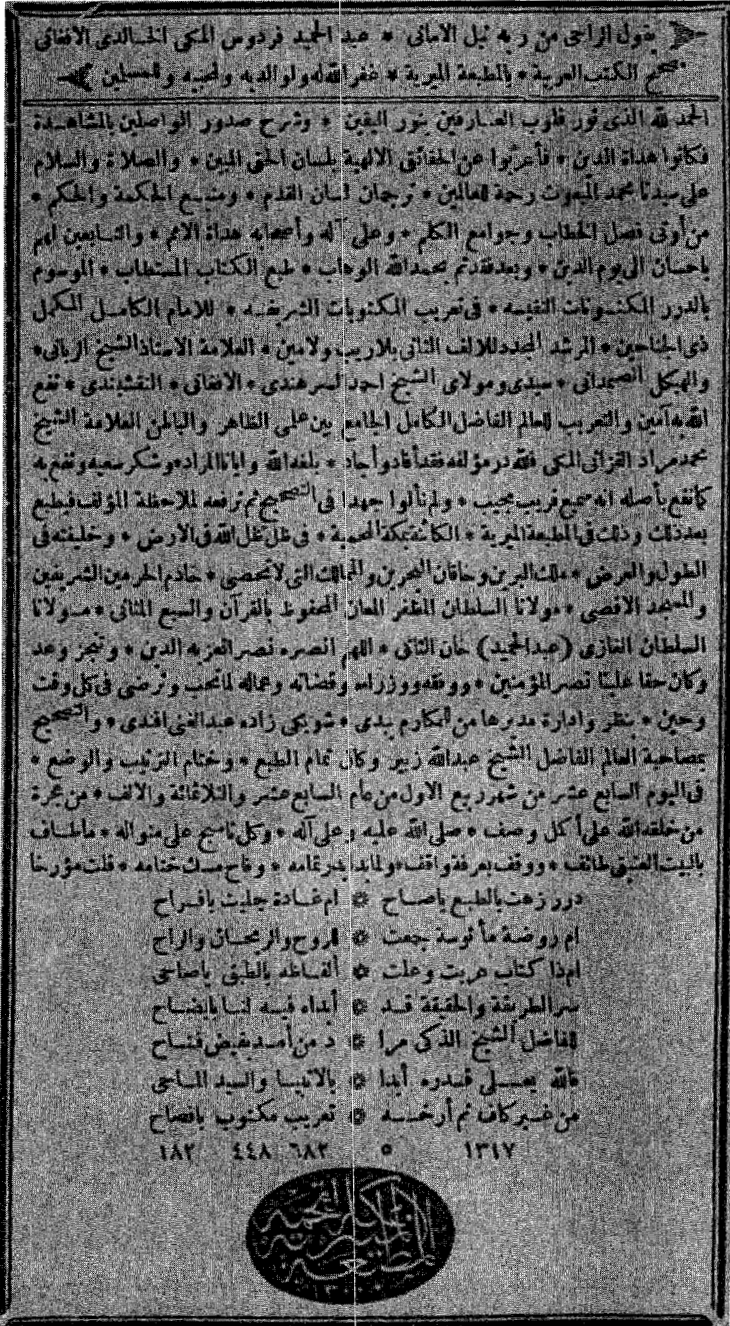 يقول الراجى من ربه نيل الامانى * عبد الحميد فردوس المكى الخالدى الافغانى
مصحح الكتب العربية * بالمطبعة الميرية * غفر الله له ولوالديه ولمحبيه وللمسلين
الحمد لله الذى نور قلوب العارفين بنور اليقين * وشرح صدور الواصلين بالمشاهدة
فكانوا هداة الدين * فأعربوا عن الحقائق الالهية بلسان الحق المبين * والصلاة والسلام
على سيدنا محمد المبعوث رحمة للعالمين * ترجمان لسان القدم * ومنبع الحكمة والحكم *
من أوتى فصل الخطاب وجوامع الكلم * وعلى آله وأصحابه هداة الامم * والتابعين لهم
باحسان الى يوم الدين * وبعد فقد تم بحمد الله الوهاب * طبع الكتاب المستطاب * الموسوم
بالدرر المكنونات النفيسه * فى تعريب المكتوبات الشريفه * للامام الكامل المكمل
ذى الجناحين * المرشد المجدد للالف الثانى بلا ريب ولامين * العلامة الاستاذ الشيخ الربانى *
والهيكل الصمدانى * سيدى ومولاى الشيخ احمد السرهندى * الافغانى * النقشبندى * نفع
الله به آمين والتعريب للعالم الفاضل الكامل الجامع بين على الظاهر والباطن العلامة الشيخ
محمد مراد القزانى المكى فلله در مؤلفه فقد أفاد وأجاد * بلغه الله وايانا المراد وشكر سعيه ونفع به
كما نفع بأصله انه سميع قريب مجيب * ولم نألوا جهدا فى التصحيح ثم نرفعه لملاحظة المؤلف فيطبع
بعد ذلك وذلك فى المطبعة الميرية * الكائنة بمكة المحمية * فى ظل ظل الله فى الارض * وخليفته فى
الطول والعرض * ملك البرين وخاقان البحرين والممالك التى لا تحصى * خادم الحرمين الشريفين
والمسجد الاقصى * مولانا السلطان المظفر المعان المحفوظ بالقرآن والسبع المثانى * مولانا
السلطان الغازى (عبد الحميد) خان الثانى * اللهم انصره نصرا تعز به الدين * وتنجز وعد
وكان حقا علينا نصر المؤمنين * ووفقه ووزراءه وقضاته وعماله لما تحب وترضى فى كل وقت
وحين * بنظر وادارة مديرها من المكارم يبدى * شويكى زاده عبد الغنى افندى * والتصحيح
بمصاحبة العالم الفاضل الشيخ عبد الله زبير وكان تمام الطبع * وختام الترتيب والوضع *
فى اليوم السابع عشر من شهر ربيع الاول من عام السابع عشر والثلاثمائة والالف * من هجرة
من خلقه الله على أكمل وصف * صلى الله عليه وعلى آله * وكل ناسج على منواله * ماطاف
بالبيت العتيق طائف * ووقف بعرفة واقف * ولما بدا بدر تمامه * وفاح مسك ختامه * قلت مؤرخا
درر زهت بالطبع ياصاح * ام غادة جليت بافراح
ام روضة مأنوسة جمعت * للروح والريحان والراح
ام ذا كتاب عربت وعلت * ألفاظه بالطبق ياصاحى
سر الطريقة والحقيقة قد * أبداه فيه لنا بايضاح
الفاضل الشيخ الذكى مرا * د من أمد بفيض فتاح
فالله يعلى قدره أبدا * بالانبيا والسيد الماحى
من غير كاف تم أرخه * تعريب مكتوب بافصاح
١٣١٧ ٥ ٦٨٢ ٤٤٨ ١٨٢